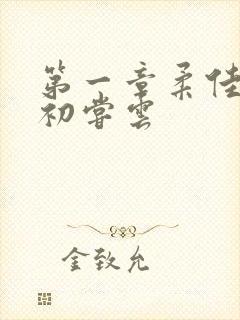 第一章柔佳
初尝云
金致允